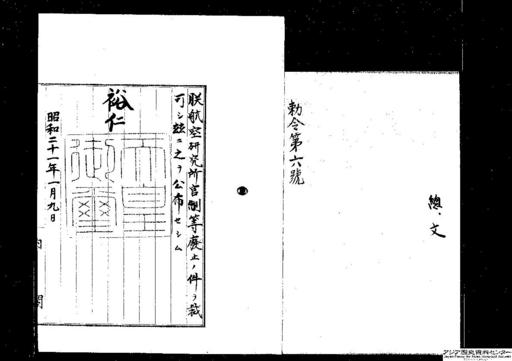 總、文
勅令第六號
朕航空研究所官制等廢止ノ件ヲ裁
可シ玆ニ之ヲ公布セシム
裕仁
天皇御璽
昭和二十一年一月九日
内閣
アジア歴史資料センター